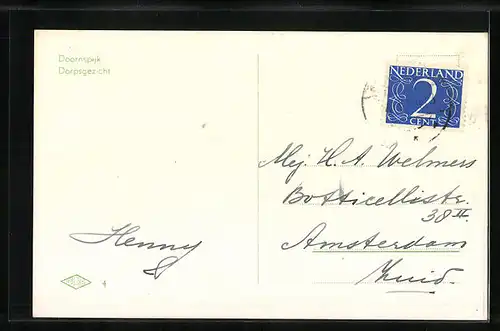 Doornspijk
Dorpsgezicht
NEDERLAND
2
CENT
Mej. H. A. Welmers
Botticellistr.
38 II.
Amsterdam
Zuid.
Henny
4